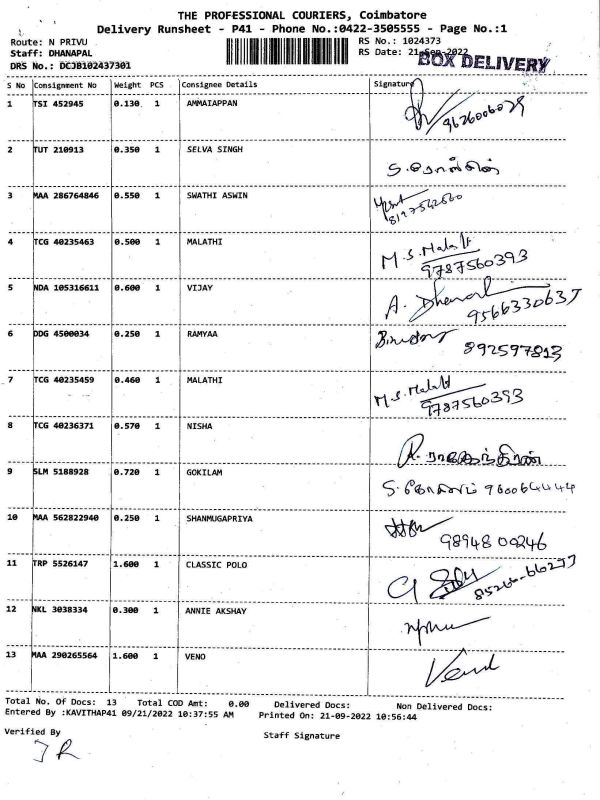 THE PROFESSIONAL COURIERS, Coimbatore
Delivery Runsheet - P41 - Phone No.:0422-3505555 - Page No.:1
Route: N PRIVU RS No.: 1024373
Staff: DHANAPAL RS Date: 21-Sep-2022
DRS No.: DCJB102437301 BOX DELIVERY
S No Consignment No Weight PCS Consignee Details Signature
1 TSI 452945 0.130 1 AMMAIAPPAN
9626006029
2 TUT 210913 0.350 1 SELVA SINGH
3 MAA 286764846 0.550 1 SWATHI ASWIN
4 TCG 40235463 0.500 1 MALATHI M.S.Malathi
9787560393
5 NDA 105316611 0.600 1 VIJAY
A. Dhanal
9566330637
6 DDG 4500034 0.250 1 RAMYAA
892597813
7 TCG 40235459 0.460 1 MALATHI M.S.Malathi
9787560393
8 TCG 40236371 0.570 1 NISHA
9 SLM 5188928 0.720 1 GOKILAM
S. கோகிலம் 9600644444
10 MAA 562822940 0.250 1 SHANMUGAPRIYA
98948 00246
11 TRP 5526147 1.600 1 CLASSIC POLO
12 NKL 3038334 0.300 1 ANNIE AKSHAY
13 MAA 290265564 1.600 1 VENO
Total No. Of Docs: 13 Total COD Amt: 0.00 Delivered Docs: Non Delivered Docs:
Entered By :KAVITHAP41 09/21/2022 10:37:55 AM Printed On: 21-09-2022 10:56:44
Verified By Staff Signature